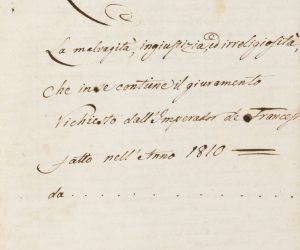 La malvagità, ingiustizia, ed irreligiosità,
che in se contiene il giuramento
richiesto dall'Imperador de Francesi
fatto nell'Anno 1810
da . . . . . . . . . . . . . . .